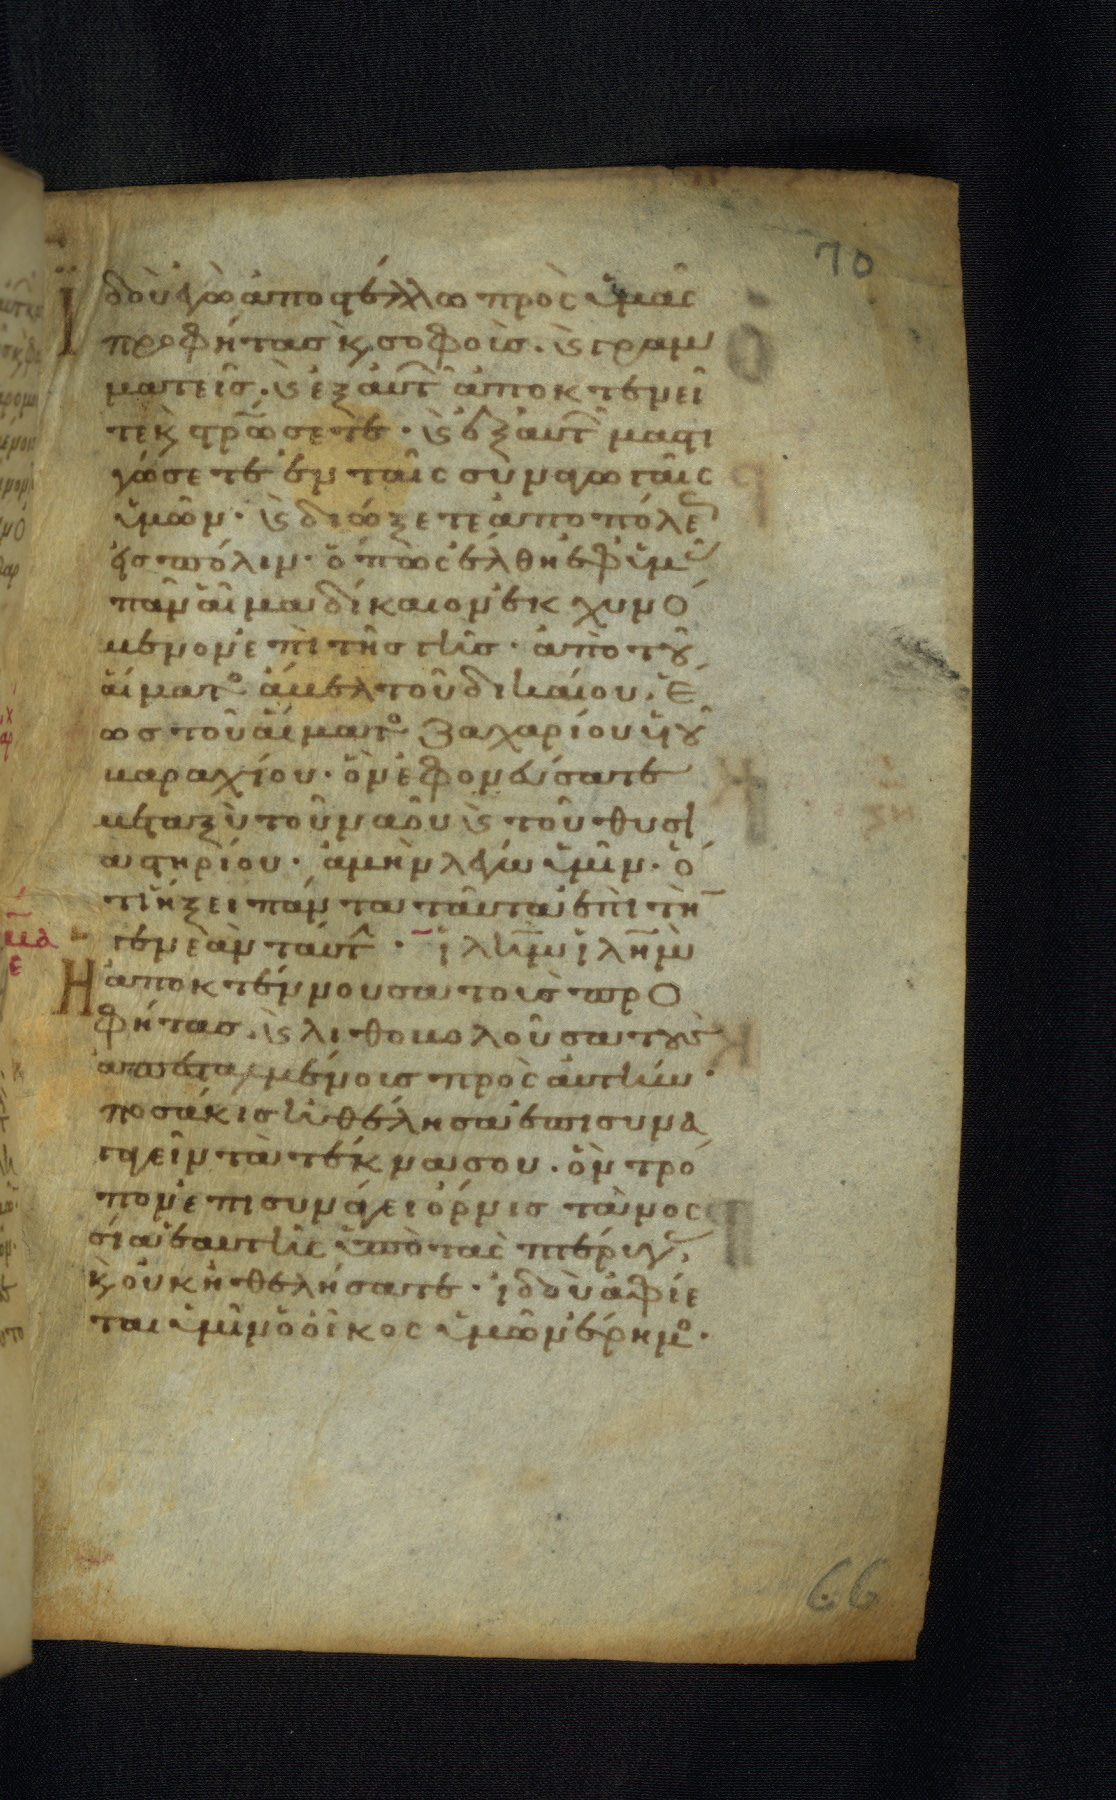 70
Ϊδοὺ ἐγὼ ἀποστέλλω πρὸς ὑμᾶς
προφήτασ κ̀ σοφοὺσ. κ̀ γραμ
ματεῖσ. κ̀ ἐξ αυτ̂ ἀποκτενεῖ
τε κ̀ στρω̅σετε. κ̀ ἐξ αυτ̂ μαστι
γώσετε ἐν ταῖς συναγωγαῖς
ὑμῶν. κ̀ διώξετε ἀπὸ πόλε
εἰσ πόλιν. ὅπως ἔλθη ἐφ ὑμ
πᾶν αἷμα δίκαιον ἐκχυνό
μενον ἐπὶ τῆσ γῆσ. ἀπὸ τοῦ
αἵματο ἄβελ τοῦ δικαίου. ἕ
ωσ τοῦ αἵματο ζαχαρίου ὑιοῦ
βαραχίου. ὃν ἐφονεύσατε
μεταξὺ τοῦ ναοῦ κ̀ τοῦ θυσι
αστηρίου. ἀμὴν λέγω ὑμῖν. ὅ
τι ἥξει πάντα ταῦτα ἐπὶ τὴ̅
γενεὰν ταύτ. ἰλη̅μ ἰλη̅μ
Ἡ ἀποκτένουσα τοὺσ προ
φήτασ. κ̀ λιθοβολοῦσα τοὺσ
ἀπεσταλμένουσ πρὸς αὐτήν.
ποσάκισ ἠθέλησα ἐπισυνα
γαγεῖν τὰ τέκνα σου. ὃν τρό
πον ἐπισυνάγει ὄρνισ τὰ νοσ
σία ἑαυτῆς ὑπὸ τὰς πτέρυγ,
κ̀ οὐκ ἠθελήσατε. ἰδοὺ ἀφίε
ται ὑμῖν ὁ οἶκος ὑμῶν ἔρημο.
66